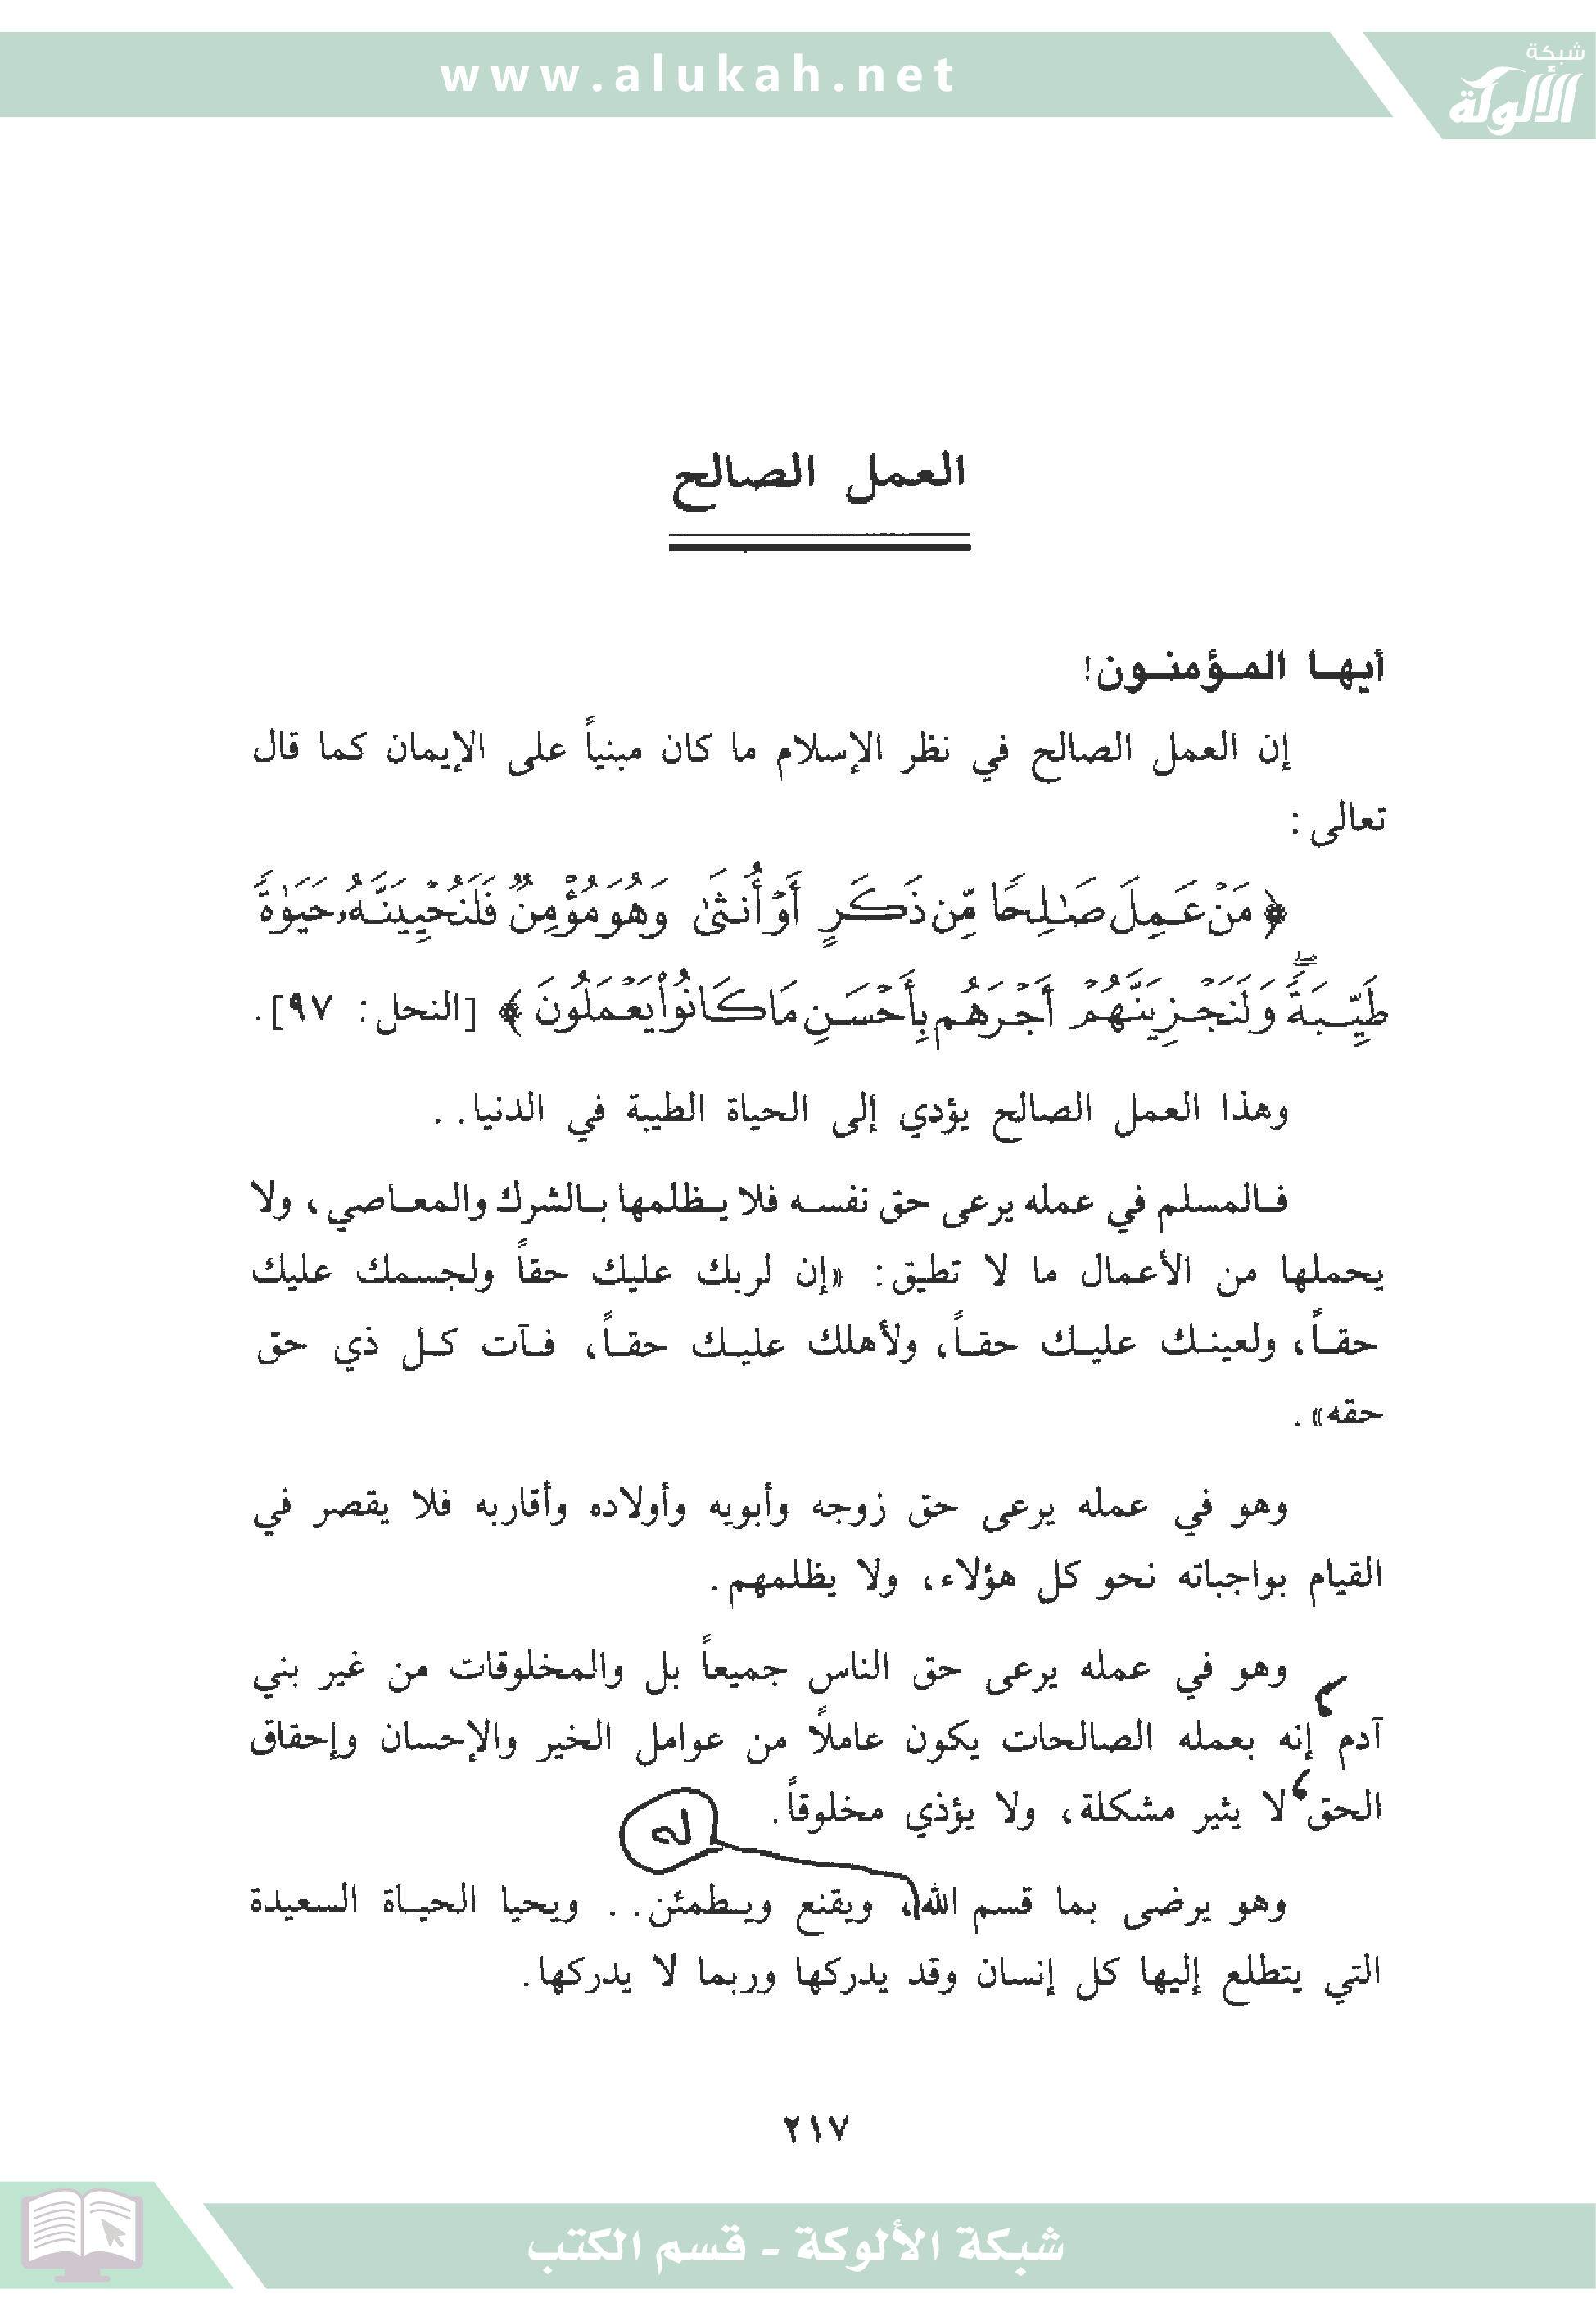 www.alukah.net
شبكة
الألوكة
العمل الصالح
أيهـا المـؤمنـون!
إن العمل الصالح في نظر الإسلام ما كان مبنياً على الإيمان كما قال
تعالى:
﴿ مَنْ عَمِلَ صَٰلِحًا مِّن ذَكَرٍ أَوْ أُنثَىٰ وَهُوَ مُؤْمِنٌ فَلَنُحْيِيَنَّهُۥ حَيَوٰةً
طَيِّبَةً ۖ وَلَنَجْزِيَنَّهُمْ أَجْرَهُم بِأَحْسَنِ مَا كَانُوا۟ يَعْمَلُونَ ﴾ [النحل: ٩٧].
وهذا العمل الصالح يؤدي إلى الحياة الطيبة في الدنيا..
فـالمسلم في عمله يرعى حق نفسـه فلا يـظلمها بـالشرك والمعـاصي، ولا
يحملها من الأعمال ما لا تطيق: «إن لربك عليك حقاً ولجسمك عليك
حقـاً، ولعينـك عليـك حقـاً، ولأهلك عليـك حقـاً، فـآت كـل ذي حق
حقه».
وهو في عمله يرعى حق زوجه وأبويه وأولاده وأقاربه فلا يقصر في
القيام بواجباته نحو كل هؤلاء، ولا يظلمهم.
وهو في عمله يرعى حق الناس جميعاً بل والمخلوقات من غير بني
آدم، إنه بعمله الصالحات يكون عاملاً من عوامل الخير والإحسان وإحقاق
الحق، لا يثير مشكلة، ولا يؤذي مخلوقاً.
له
وهو يرضى بما قسم الله، ويقنع ويـطمئن.. ويحيا الحيـاة السعيدة
التي يتطلع إليها كل إنسان وقد يدركها وربما لا يدركها.
٢١٧
شبكة الألوكة - قسم الكتب